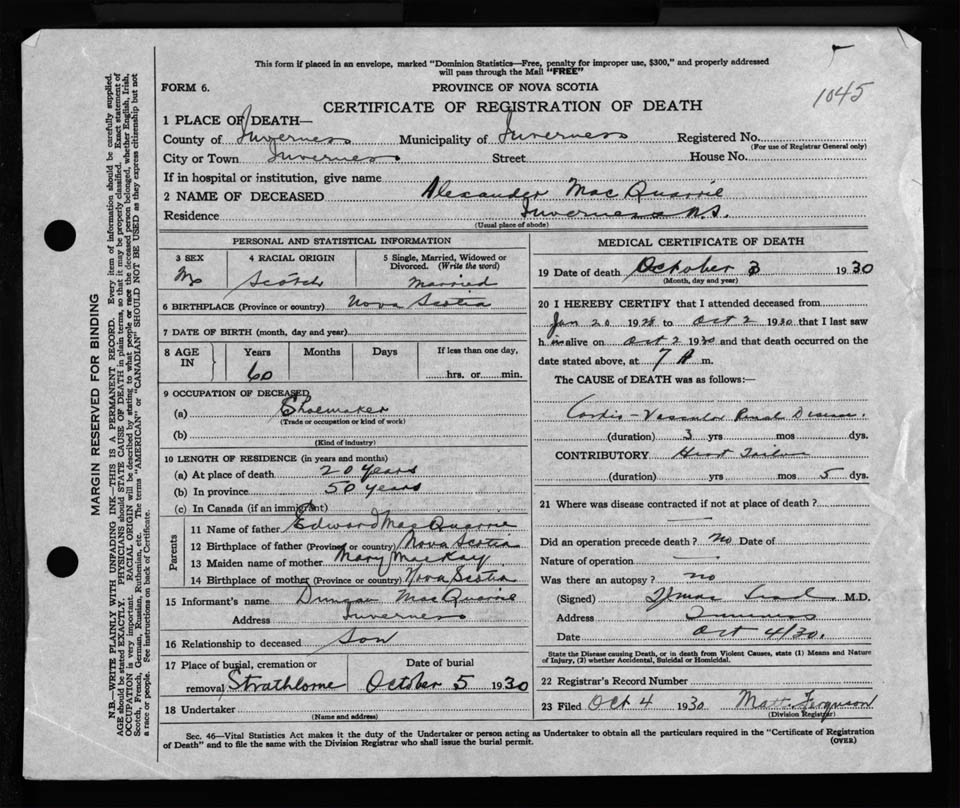 This form if placed in an envelope, marked "Dominion Statistics—Free, penalty for improper use, $300," and properly addressed
will pass through the Mail "FREE"
1045
FORM 6.
PROVINCE OF NOVA SCOTIA
CERTIFICATE OF REGISTRATION OF DEATH
1 PLACE OF DEATH—
County of Inverness Municipality of Inverness Registered No.
(For use of Registrar General only)
City or Town Inverness Street House No.
If in hospital or institution, give name
2 NAME OF DECEASED Alexander MacQuarrie
Residence Inverness N.S.
(Usual place of abode)
PERSONAL AND STATISTICAL INFORMATION
3 SEX 4 RACIAL ORIGIN 5 Single, Married, Widowed or
Divorced. (Write the word)
M Scotch Married
6 BIRTHPLACE (Province or country) Nova Scotia
7 DATE OF BIRTH (month, day and year)
8 AGE IN Years Months Days If less than one day,
60 hrs. or min.
9 OCCUPATION OF DECEASED
(a) Shoemaker
(Trade or occupation or kind of work)
(b)
(Kind of industry)
10 LENGTH OF RESIDENCE (in years and months)
(a) At place of death 20 years
(b) In province 50 years
(c) In Canada (if an immigrant)
Parents
11 Name of father Edward MacQuarrie
12 Birthplace of father (Province or country) Nova Scotia
13 Maiden name of mother Mary MacKay
14 Birthplace of mother (Province or country) Nova Scotia
15 Informant's name Duncan MacQuarrie
Address Inverness
16 Relationship to deceased Son
17 Place of burial, cremation or Date of burial
removal Strathlorne October 5 1930
18 Undertaker
(Name and address)
MEDICAL CERTIFICATE OF DEATH
19 Date of death October 3 1930
(Month, day and year)
20 I HEREBY CERTIFY that I attended deceased from
Jan 20 1928 to Oct 2 1930 that I last saw
h im alive on Oct 2 1930 and that death occurred on the
date stated above, at 7 P m.
The CAUSE of DEATH was as follows:—
Cardio-Vascular Renal Disease
(duration) 3 yrs. mos. dys.
CONTRIBUTORY Heart Failure
(duration) yrs. mos. 5 dys.
21 Where was disease contracted if not at place of death?
Did an operation precede death? no Date of
Nature of operation
Was there an autopsy? no
(Signed) M.D.
Address Inverness
Date Oct 4/30.
State the Disease causing Death, or in death from Violent Causes, state (1) Means and Nature
of Injury, (2) whether Accidental, Suicidal or Homicidal.
22 Registrar's Record Number
23 Filed Oct 4 1930 Matt. Ferguson
(Division Registrar)
Sec. 46—Vital Statistics Act makes it the duty of the Undertaker or person acting as Undertaker to obtain all the particulars required in the "Certificate of Registration
of Death" and to file the same with the Division Registrar who shall issue the burial permit.
(OVER)
MARGIN RESERVED FOR BINDING
N.B.—WRITE PLAINLY WITH UNFADING INK—THIS IS A PERMANENT RECORD. Every item of information should be carefully supplied.
AGE should be stated EXACTLY. PHYSICIANS should STATE CAUSE OF DEATH in plain terms, so that it may be properly classified. Exact statement of
OCCUPATION is very important. RACIAL ORIGIN will be described by stating to what people or race the deceased person belonged, whether English, Irish,
Scotch, French, German, Russian, Ruthenian, etc. The terms "AMERICAN" or "CANADIAN" SHOULD NOT BE USED as they express citizenship but not
a race or people. See instructions on back of Certificate.